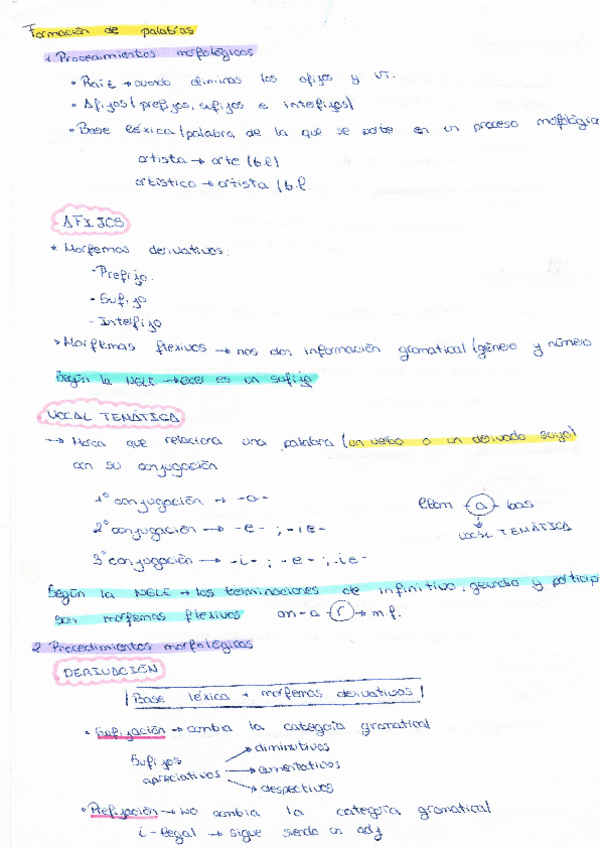 Formación de palabras
1. Procedimientos morfológicos
• Raíz → cuando eliminas los afijos y VT.
• Afijos (prefijos, sufijos e interfijos)
• Base léxica (palabra de la que se parte en un proceso morfológico
artista → arte (b.l)
artístico → artista (b.l
AFIJOS
* Morfemas derivativos:
- Prefijo.
- Sufijo
- Interfijo
* Morfemas flexivos → nos dan información gramatical (género y número
Según la NGLE → es un sufijo
VOCAL TEMÁTICA
→ Marca que relaciona una palabra (un verbo o un derivado suyo)
con su conjugación
1º conjugación → -a-
2º conjugación → -e- ; -ie-
3º conjugación → -i- ; -e- ; -ie-
llam - a - bas
VOCAL TEMÁTICA
Según la NGLE → las terminaciones de infinitivo, gerundio y particip
son morfemas flexivos am-a (r) → m.f.
2. Procedimientos morfológicos
DERIVACIÓN
Base léxica + morfemas derivativos
• Sufijación → cambia la categoría gramatical
Sufijos apreciativos
→ diminutivos
→ aumentativos
→ despectivos
• Prefijación → No cambia la categoría gramatical
i-legal → sigue siendo un adj